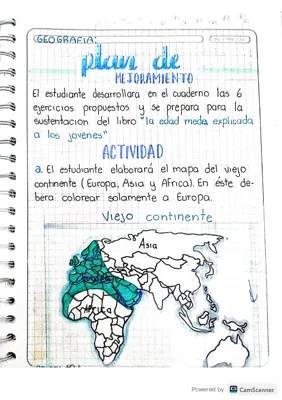 GEOGRAFIA:
plan de
MEJORAMIENTO
El estudiante desarrollara en el cuaderno las 6
ejercicios propuestos y se prepara para la
sustentación del libro "la edad media explicada
a los jovenes"
ACTIVIDAD
a. El estudiante elaborará el mapa del viejo
continente (Europa, Asia y Africa). En éste de-
bera colorear solamente a Europa.
Viejo continente
Asia
Europa
Africa
Powered by CS CamScanner